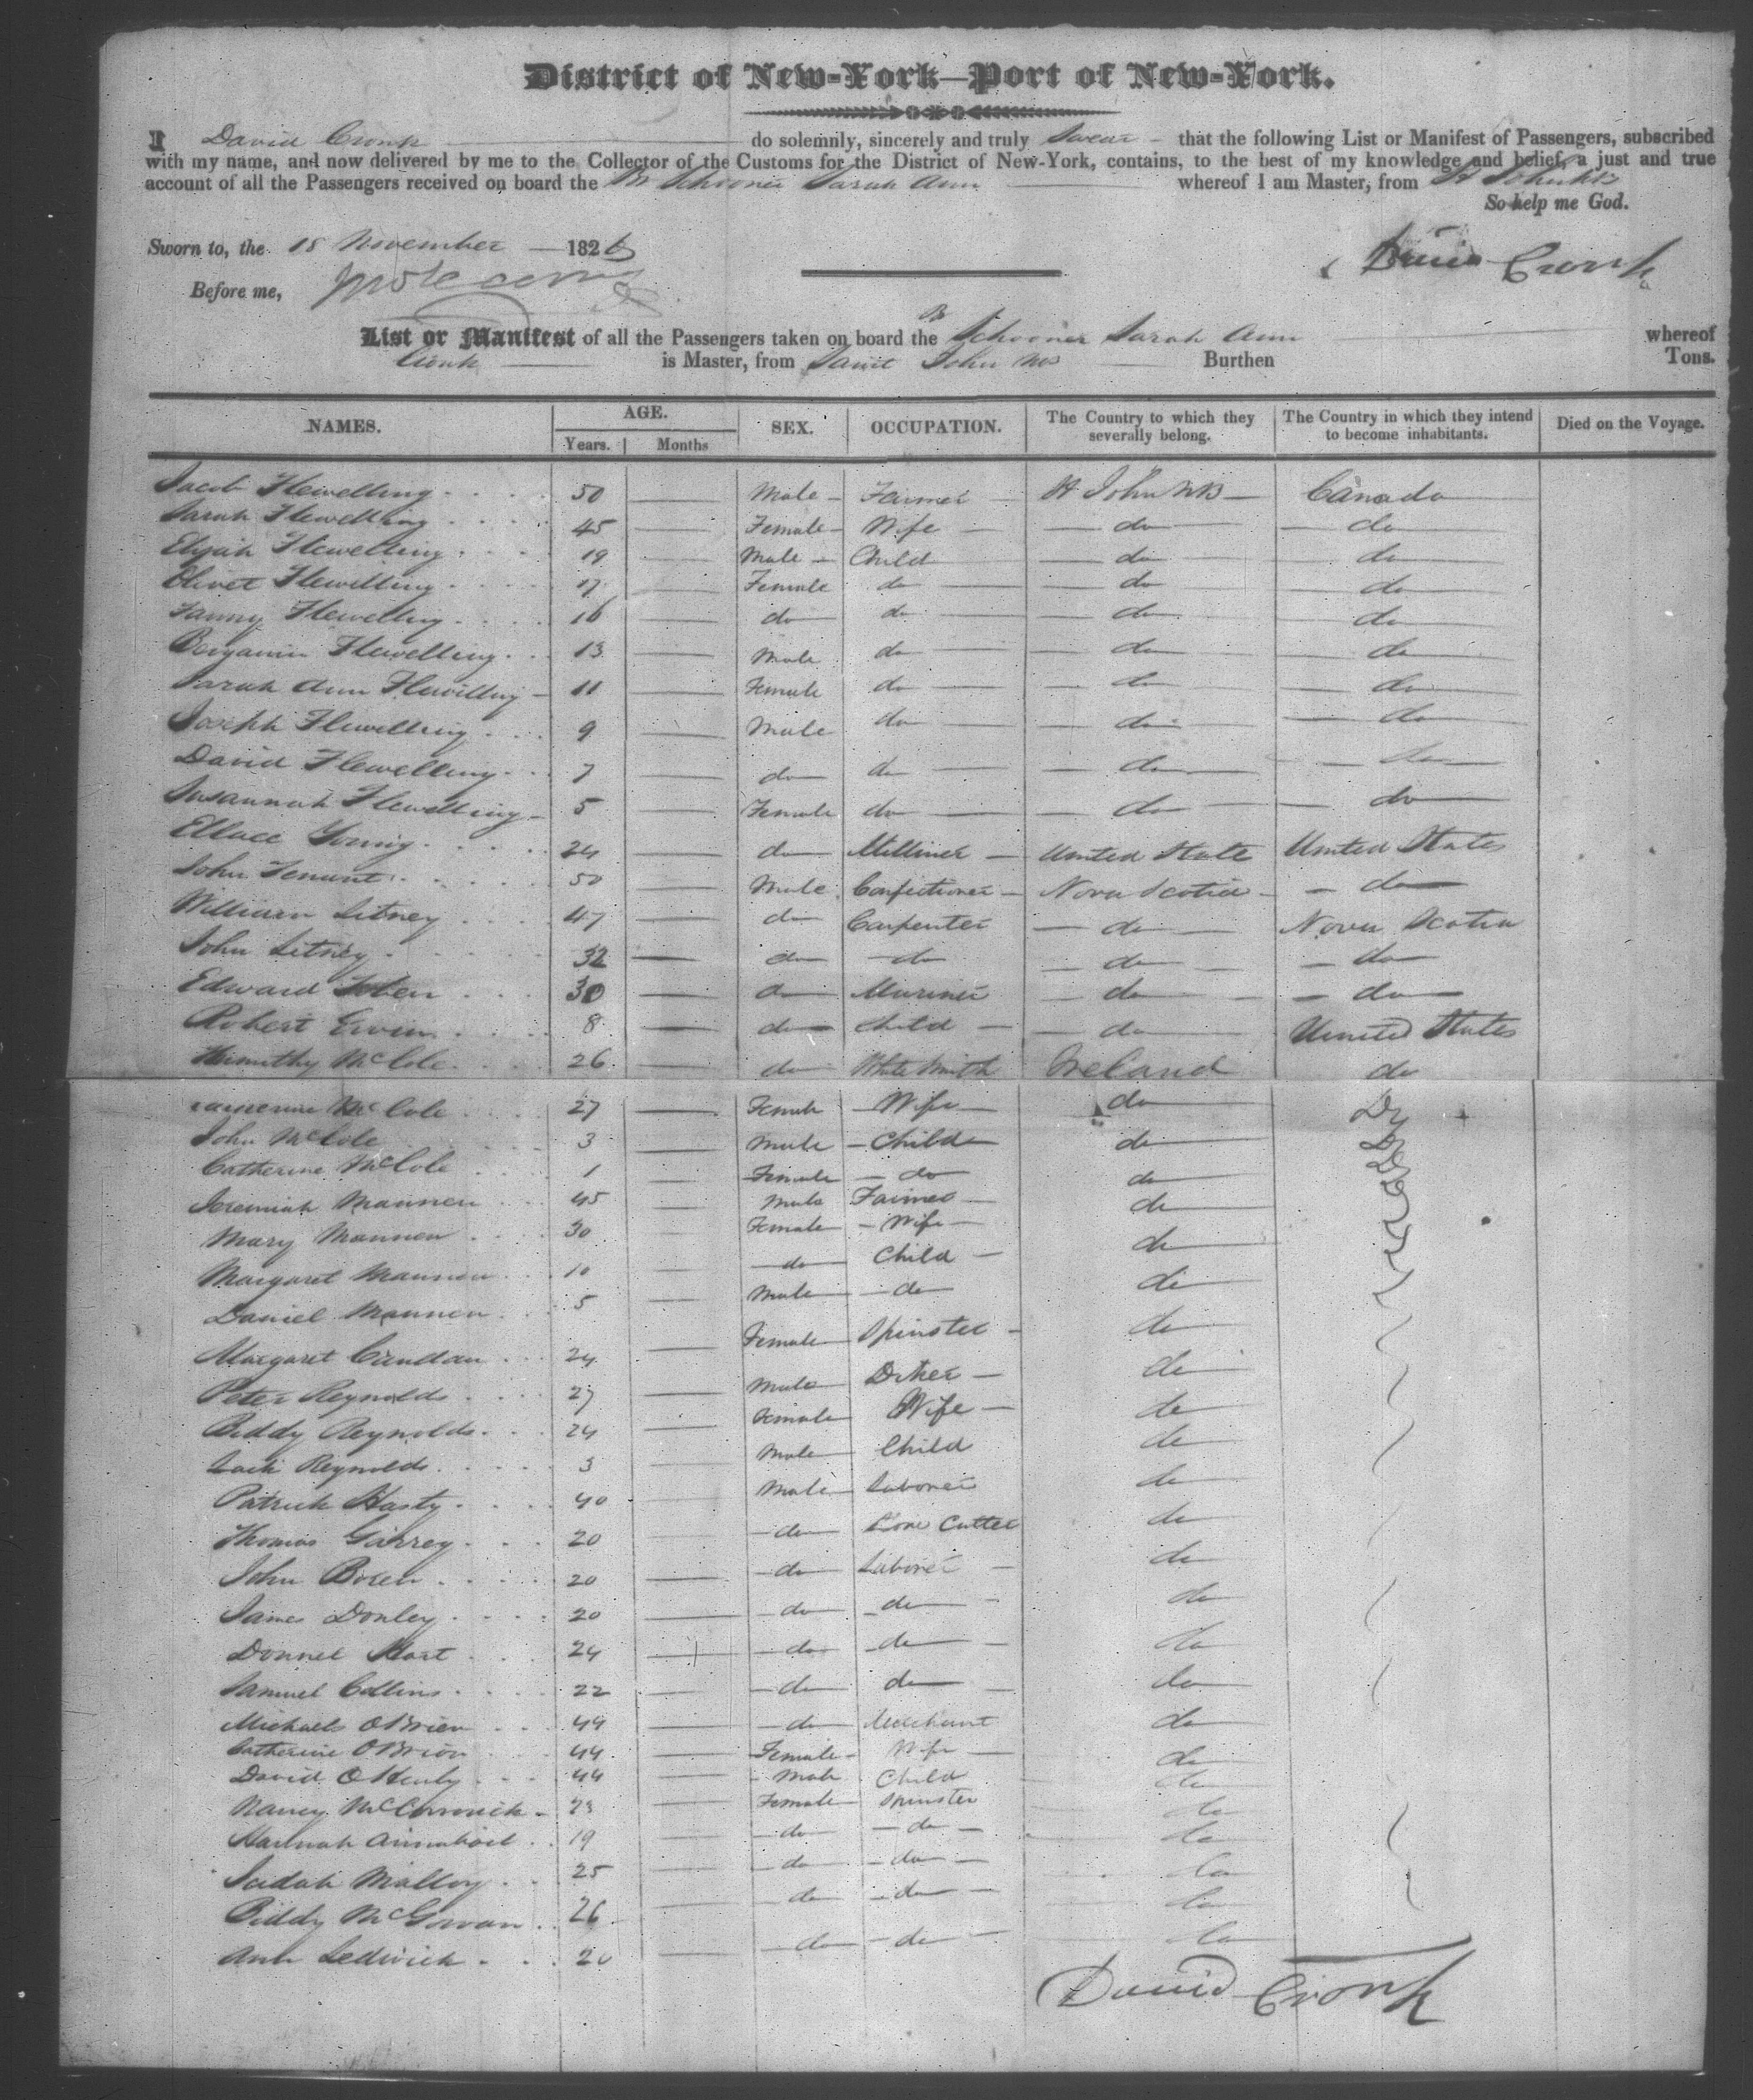 District of New-York—Port of New-York.
I David Cronk do solemnly, sincerely and truly Swear that the following List or Manifest of Passengers, subscribed
with my name, and now delivered by me to the Collector of the Customs for the District of New-York, contains, to the best of my knowledge and belief, a just and true
account of all the Passengers received on board the Br Schooner Sarah Ann whereof I am Master, from St John NB
So help me God.
Sworn to, the 18 November 1826 David Cronk
Before me,
List or Manifest of all the Passengers taken on board the Br Schooner Sarah Ann whereof
Cronk is Master, from Saint John NB Burthen Tons.
NAMES. AGE. SEX. OCCUPATION. The Country to which they severally belong. The Country in which they intend to become inhabitants. Died on the Voyage.
Years. Months
Jacob Flewelling 50 Male Farmer St John NB Canada
Sarah Flewelling 45 Female Wife do do
Elijah Flewelling 19 Male Child do do
Olivet Flewelling 17 Female do do do
Fanny Flewelling 16 do do do do
Benjamin Flewelling 13 Male do do do
Sarah Ann Flewelling 11 Female do do do
Joseph Flewelling 9 Male do do do
David Flewelling 7 do do do do
Susannah Flewelling 5 Female do do do
Young 24 do Milliner United State United States
John Tenant 50 Male Confectioner Nova Scotia do
William Litney 47 do Carpenter do Nova Scotia
John Litney 32 do do do do
Edward 30 do Mariner do do
Robert 8 do Child do United States
McCole 26 do White Smith Ireland do
McCole 27 Female Wife do Do
John McCole 3 Male Child do Do
Catherine McCole 1 Female do do
Jeremiah Mannen 45 Male Farmer do
Mary Mannen 30 Female Wife do
Margaret Mannen 10 do Child do
Daniel Mannen 5 Male do do
Margaret 24 Female Spinster do
Peter Reynolds 27 Male do
Biddy Reynolds 24 Female Wife do
Reynolds 3 Male Child do
Patrick Hasty 40 Male Laborer do
Thomas 20 do Cutter do
John 20 do Laborer do
James Donley 20 do do do
Donnel Hart 24 do do do
Samuel Collins 22 do do do
Michael O'Brien 44 do Merchant do
Catherine O'Brien 44 Female Wife do
David 44 Male Child do
Nancy McCormick 23 Female Spinster do
Hannah 19 do do do
Malloy 25 do do do
Biddy McGowan 26 do do do
Ann Ledwich 20 do do do
David Cronk